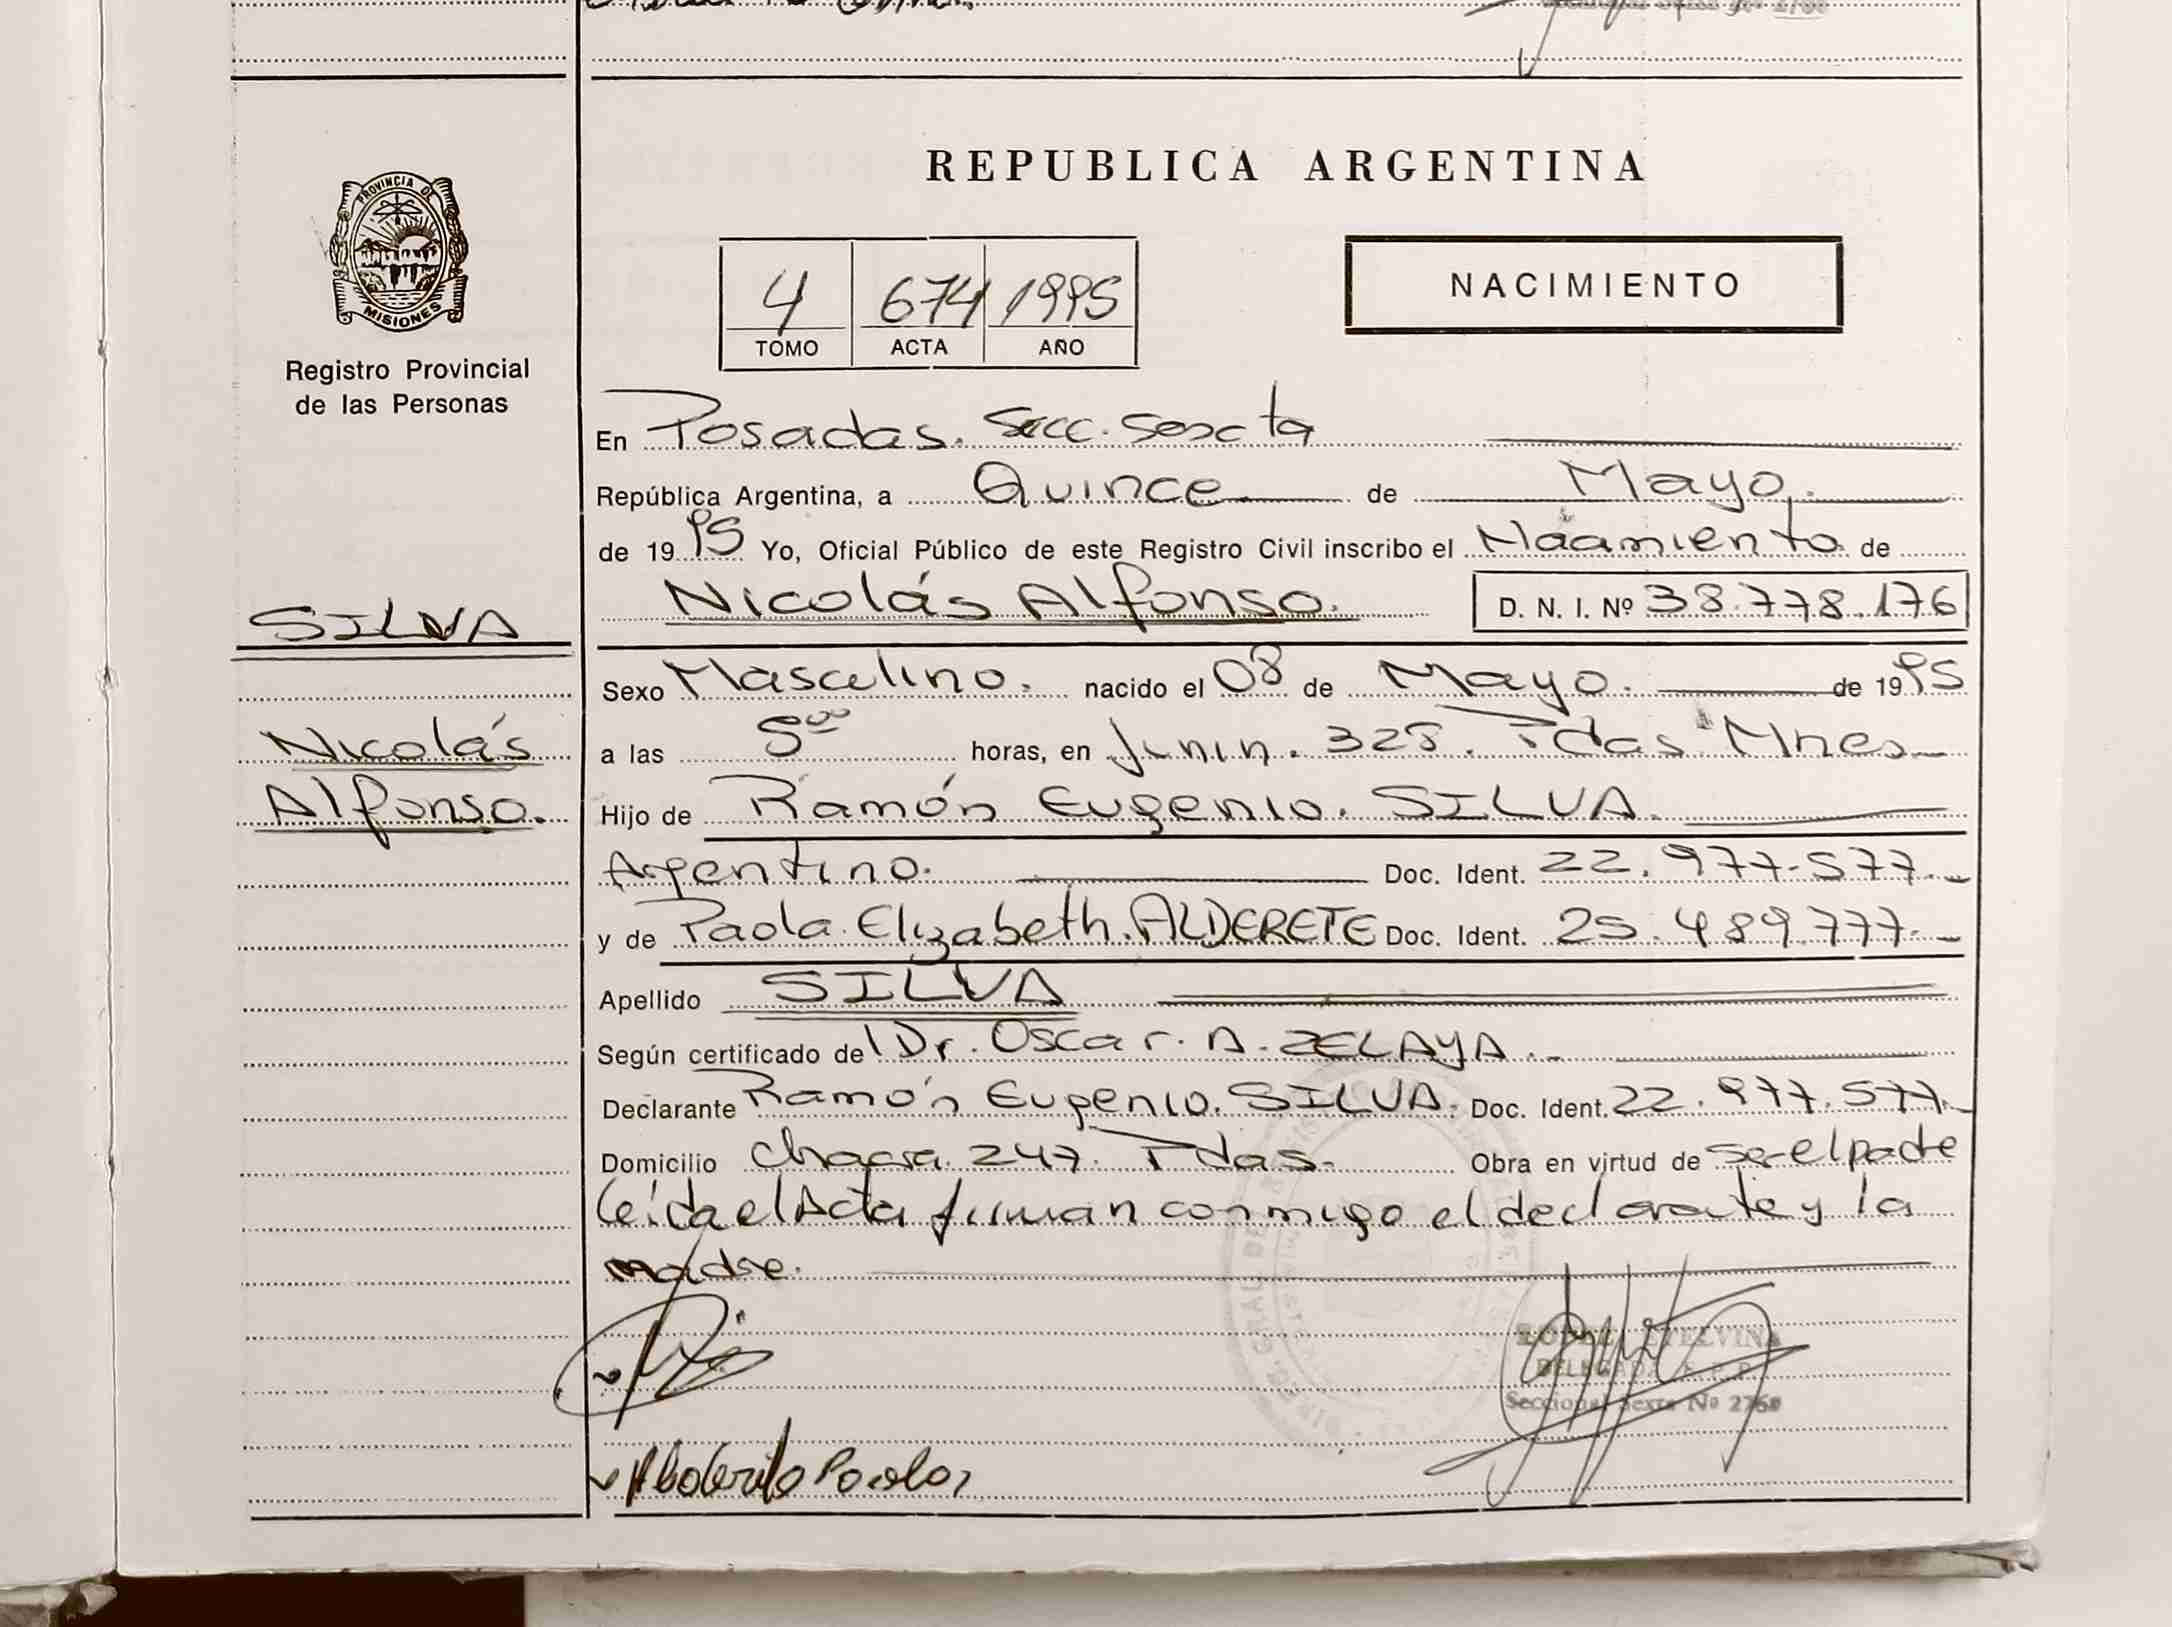 PROVINCIA DE
MISIONES
Registro Provincial
de las Personas
SILVA
Nicolás
Alfonso.
REPUBLICA ARGENTINA
4 674 1995
TOMO ACTA AÑO
NACIMIENTO
En Posadas. Secc. Sexta
República Argentina, a Quince de Mayo.
de 1995 Yo, Oficial Público de este Registro Civil inscribo el Nacimiento de
Nicolás Alfonso. D. N. I. Nº 38.778.176
Sexo Masculino. nacido el 08 de Mayo. de 1995
a las 5:00 horas, en Junin. 328. Pdas Mnes
Hijo de Ramón Eugenio. SILVA.
Argentino. Doc. Ident. 22.977.577.-
y de Paola Elizabeth. ALDERETE Doc. Ident. 25.489.777.-
Apellido SILVA
Según certificado de Dr. Oscar. A. ZELAYA.-
Declarante Ramón Eugenio. SILVA. Doc. Ident. 22.977.577.-
Domicilio Chacra 247. Pdas. Obra en virtud de ser el padre
leída el Acta firman conmigo el declarante y la
madre.
LOPEZ, ETELVINA
DELEGADA
Seccional Sexta Nº 2760
Alderete Paola